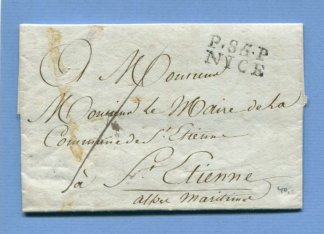 P.85.P
NICE
A Monsieur
Monsieur le Maire de la
Commune de St Etienne
à St Etienne
alpes Maritimes